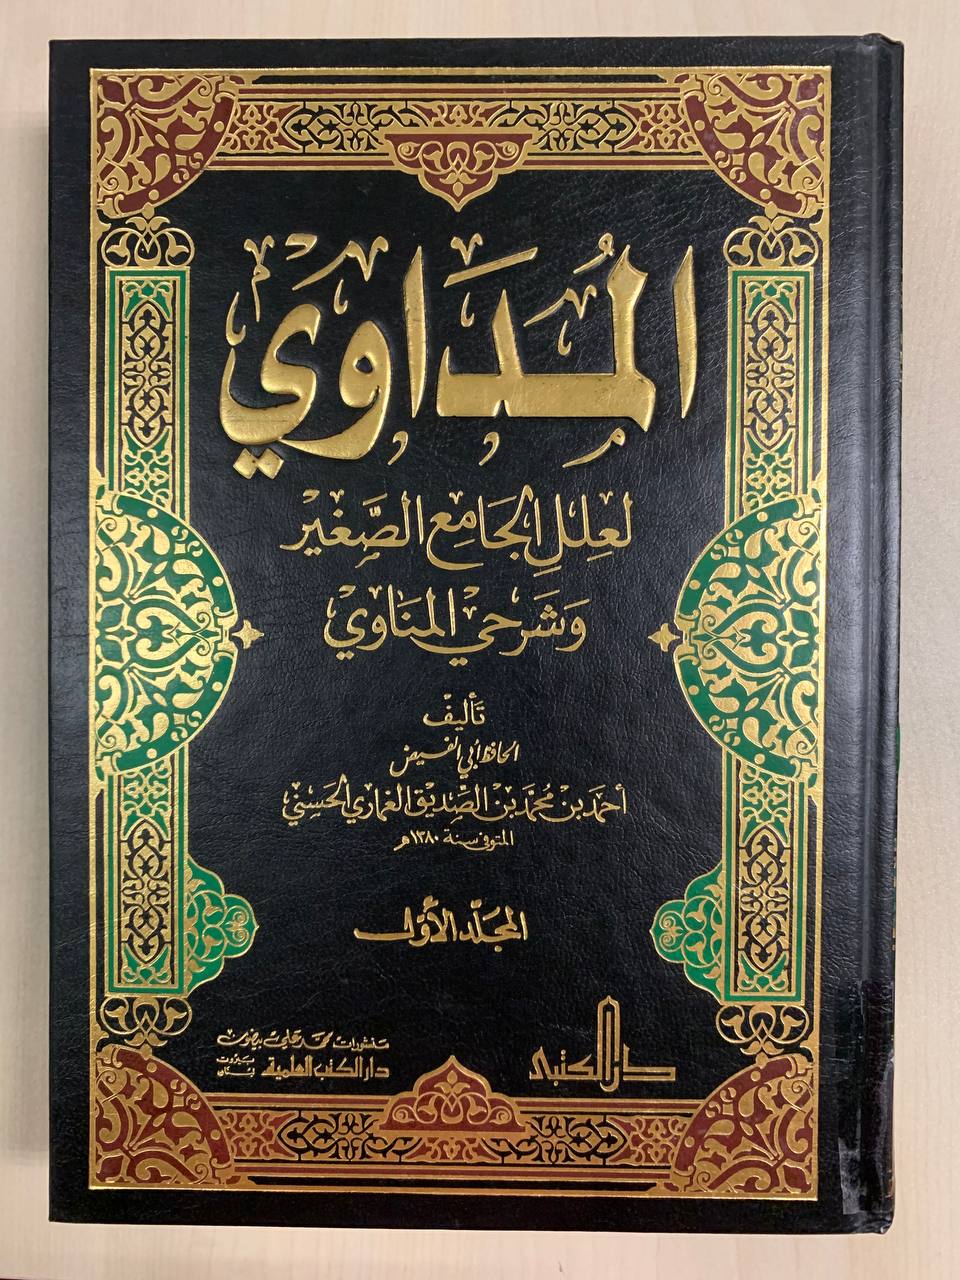 المُدَاوي
لعِلَلِ الجَامع الصَّغير
وَشَرحي المنَاوي
تَأليف
الحافظ أبي الفيض
أحمَد بن محُمَّد بن الصِّديق الغماري الحَسني
المتوفى سنة ١٣٨٠هـ
المجَلّد الأوّل
دار الكتبي
منشورات محمد علي بيضون
دار الكتب العلمية
بيروت لبنان